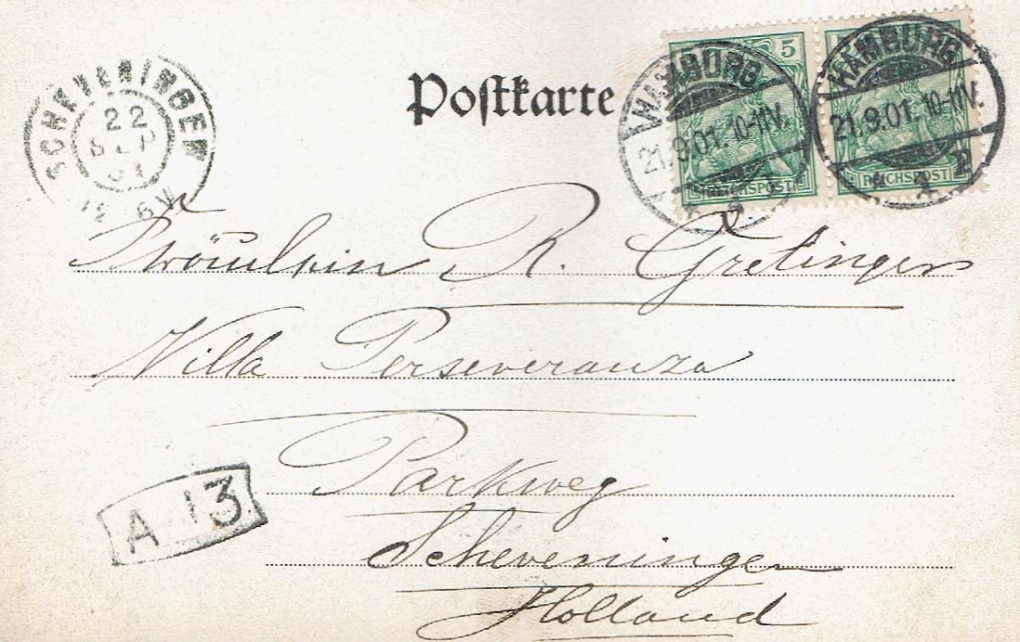 Postkarte
5
REICHSPOST
REICHSPOST
HAMBURG
21.9.01. 10-11V.
HAMBURG
21.9.01. 10-11V.
SCHEVENINGEN
22
SEP
01
Fräulein R. Gretinger
Villa Perseveranza
Parkweg
Scheveningen
Holland
A 13